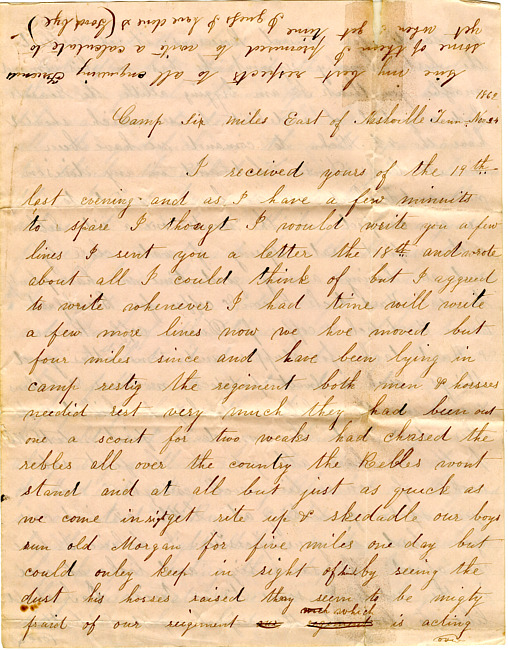 Give my best respects to all enquiring Friends
some of them I promised to write a calculate to
yet when I get time
I guess I have done so (Good bye)
1862
Camp Six miles East of Nashville Tenn. Nov 24
I received yours of the 19th
last evening and as I have a few minuits
to spare I thougt I would write you a few
lines I sent you a letter the 18th and wrote
about all I could think of but I aggreed
to write whenever I had time will write
a few more lines now we hve moved but
four miles since and have been lying in
camp restig the regiment both men & horses
needid rest very much they had been out
one a scout for two weaks had chased the
rebles all over the country the Rebles wont
stand and at all but just as quick as
we come in sight get rite up & skedadle our boys
run old Morgan for five miles one day but
could onley keep in sight of him by seeing the
dust his horses raised they seem to be migty
fraid of our reigment our regement with which is acting